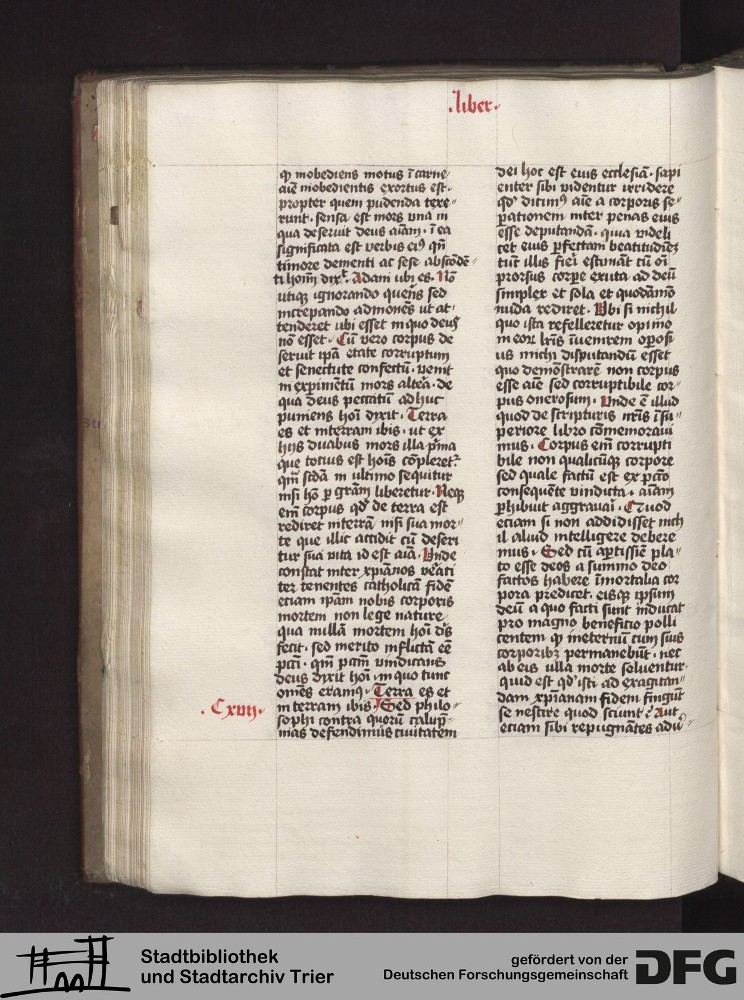 .liber.
qͥ inobediens motus ī carne
aīe inobedientis exortus est.
propter quem pudenda texe-
runt. sensa est mors vna in
qua deseruit deus aīam. ī ea
significata est verbis eiꝰ qn̄
timore dementi ac sese abscōdē-
ti homī dixͭ. Adam vbi es. Nō
vtiqꝫ ignorando querēs sed
increpando admonēs vt at-
tenderet vbi esset in quo deus
nō esset. Cū vero corpus de
seruit ip̄a etate corruptum
et senectute confectū. venit
in expimētū mors altera. de
qua deus peccatū adhuc
puniens hoī dixit. Terra
es et in terram ibis. vt ex
hijs duabus mors illa pͥma
que totius est hoīs cōpleretͬ
qm̄ scd̄a in vltimo sequitur
nisi hō ꝑ grām liberetur. Neqꝫ
em̄ corpus qd̓ de terra est
rediret in terrā nisi sua mor-
te que illic accidit cū deseri
tur sua vita id est aīa. Vnde
constat inter xp̄ianos veͬaci
ter tenentes catholicā fidē
eciam ip̄am nobis corporis
mortem non lege nature
qua nullā mortem hoī ds̄
fecit. sed merito inflictā eē
pcc̄i. qm̄ pcc̄m vindicans
deus dixit hoī. in quo tunc
om̄es eramꝰ. Terra es et
in terram ibis. Sed philo-
.Cxvij.
sophi contra quorū calūp̄-
nias defendimus ciuitatem
dei hoc est eius ecclesiā. sapi
enter sibi videntur irridere
qd̓ dicimꝰ aīe a corporis se-
ꝑationem inter penas eius
esse deputandā. quia videli
cet eius ꝑfectam beatitudinēꝫ
tūc illi fieri estimāt cū oī
prorsus corpe exuta ad deū
simplex et sola et quodāmō
nuda rediret. Vbi si nichil
quo ista refelleretur opinio
in eorꝫ lrīs īuenirem oꝑosi
us michi disputandū esset
quo demōstrarē non corpus
esse aīe sed corruptibile cor-
pus onerosum. Vnde ē illud
quod de scripturis nrīs ī su-
periore libro cōmemoraui
mus. Corpus em̄ corrupti
bile non qualicūqꝫ corpore
sed quale factū est ex pcc̄o
consequēte vindicta. aīam
ꝑhibuit aggrauaī. Quod
eciam si non addidisset nich
il aliud intelligere debere
mus. Sed cū aꝑtissīe pla-
to esse deos a summo deo
factos habere īmortalia cor
pora predicet. eisqꝫ ipsum
deū a quo facti sunt inducat
pro magno beneficio polli
centem qͥ in eternū cum suis
corporibꝫ permanebūt. nec
ab eis vlla morte soluentur.
quid est qd̓ isti ad exagitan-
dam xp̄ianam fidem fingūt
se nescire quod sciunt. Aut
eciam sibi repugnātes aduͬ
Stadtbibliothek
und Stadtarchiv Trier
gefördert von der
Deutschen Forschungsgemeinschaft
DFG